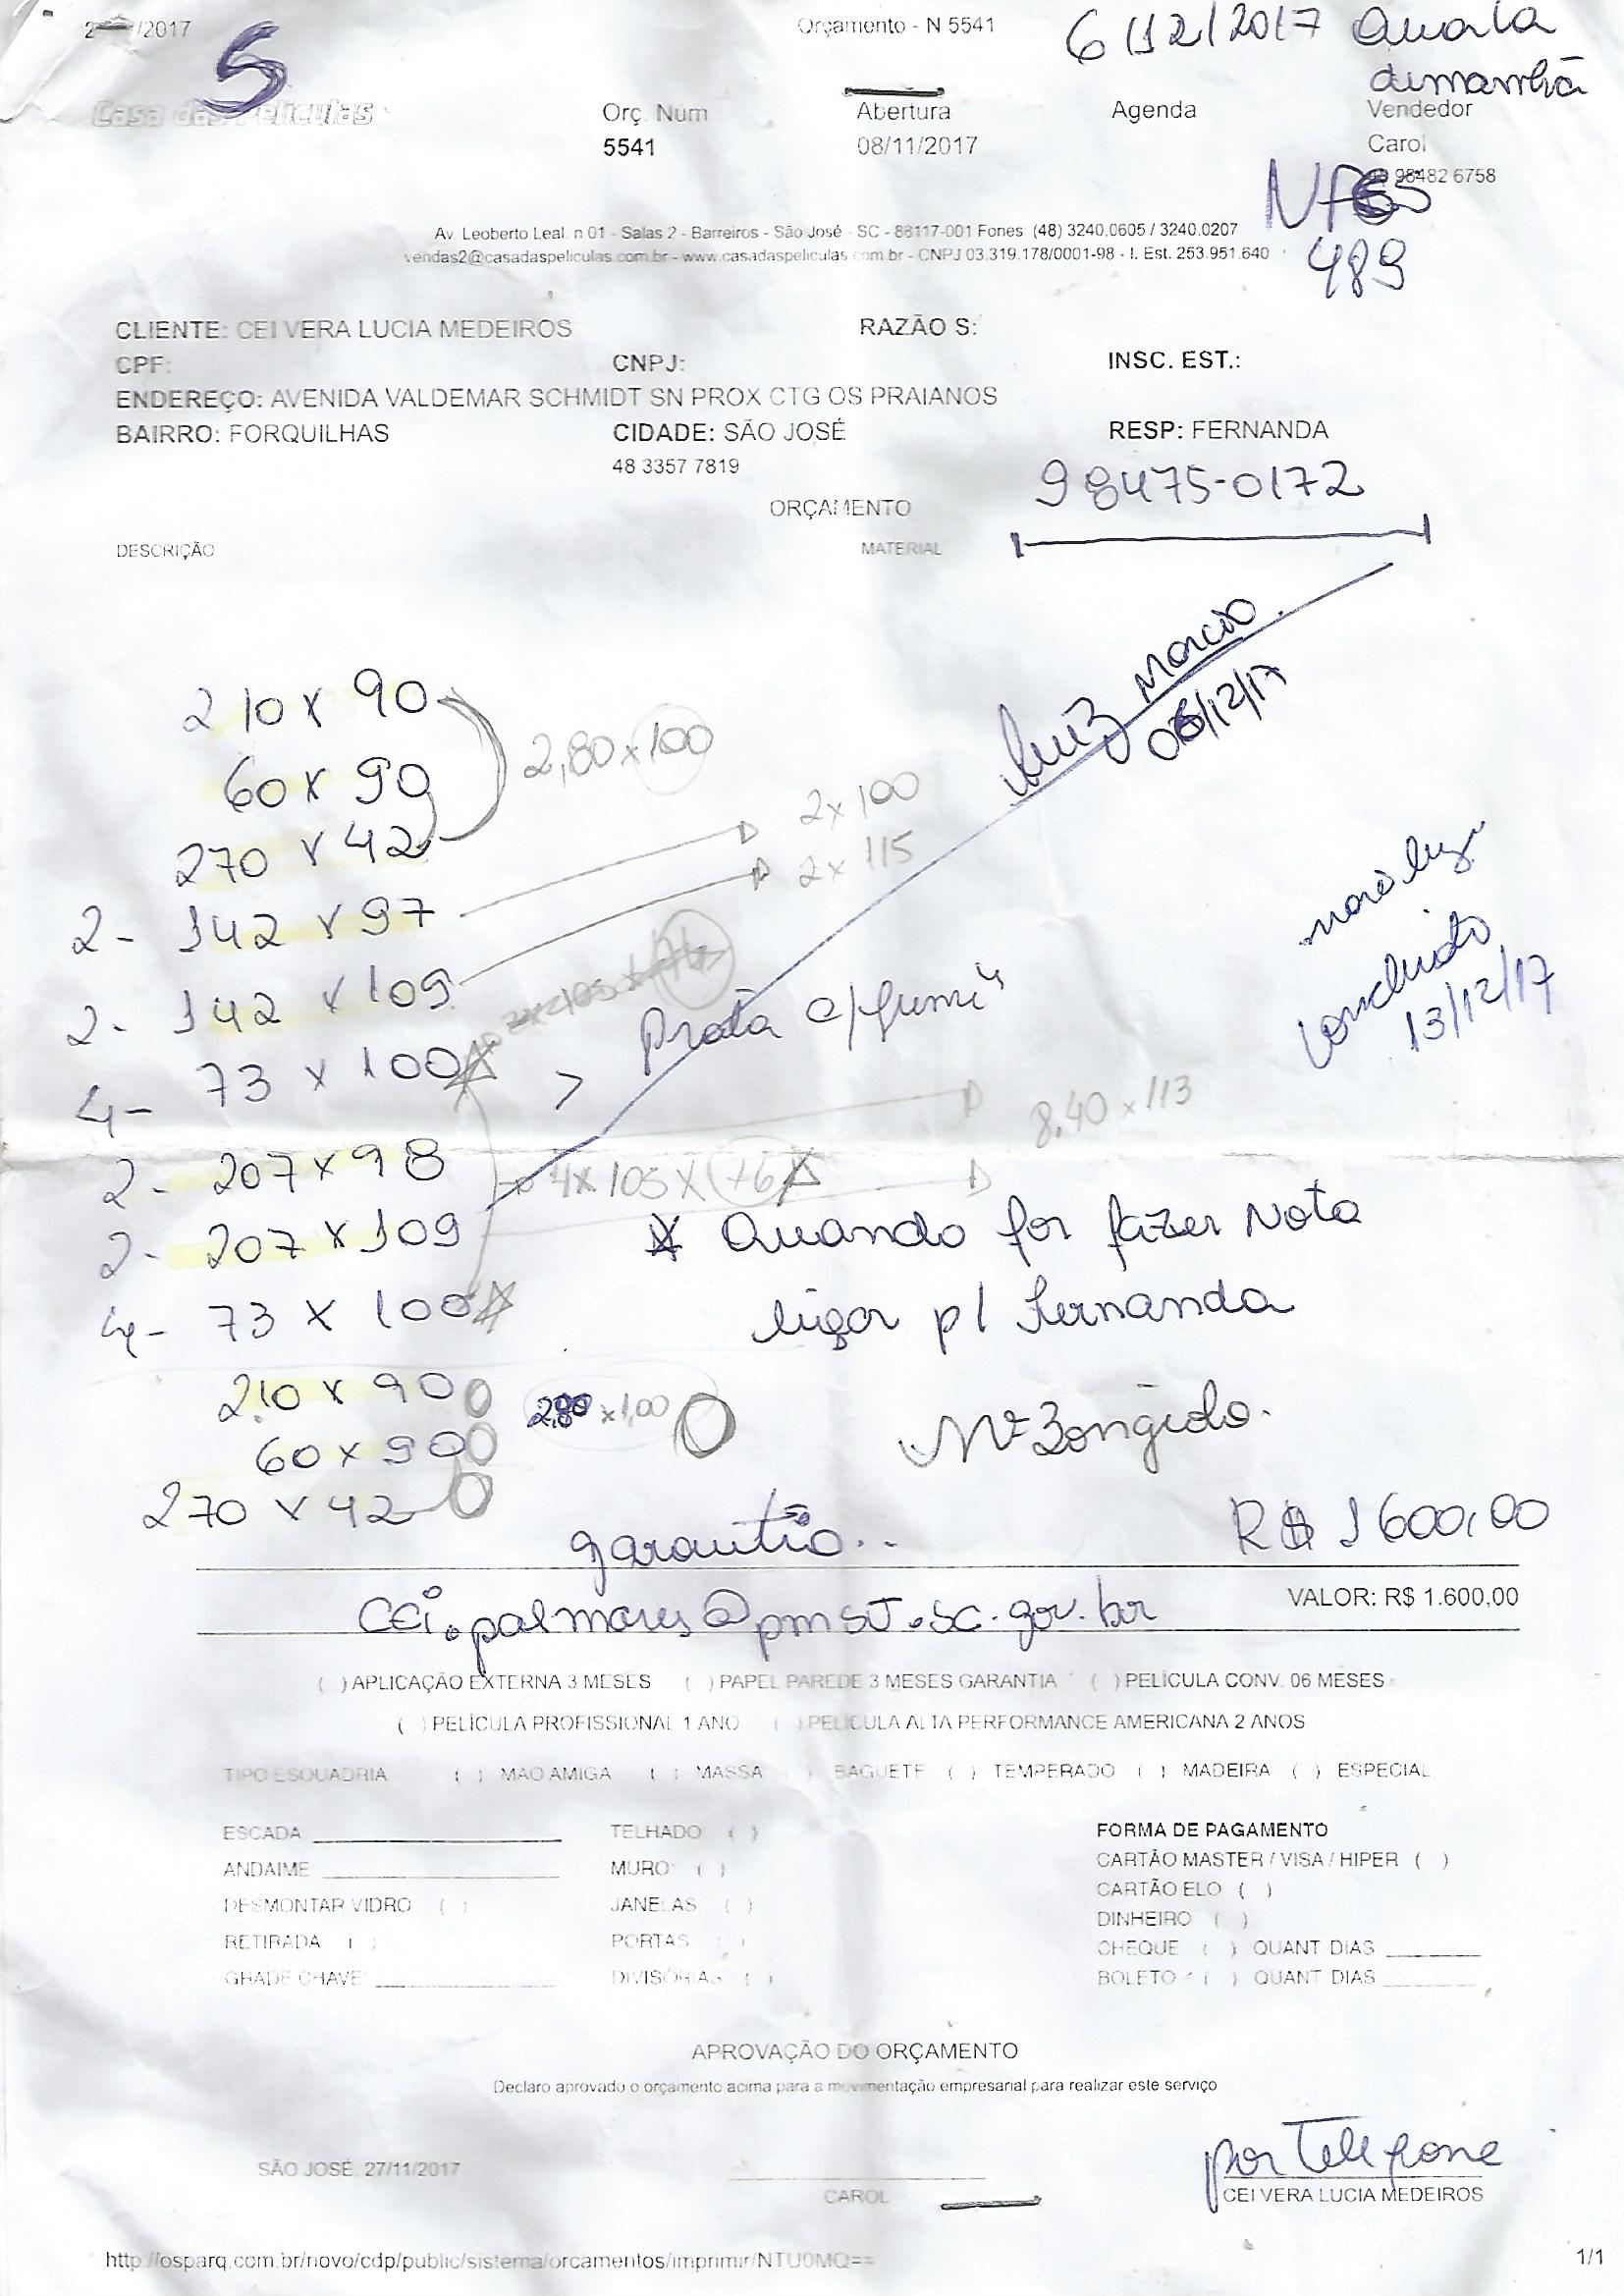 /2017
Orçamento - N 5541
6/12/2017 Quarta
5
dimanhã
Casa das Películas
Orç. Num
Abertura
Agenda
Vendedor
5541
08/11/2017
Carol
98482 6758
489
Av. Leoberto Leal, n 01 - Salas 2 - Barreiros - São José - SC - 88117-001 Fones: (48) 3240.0605 / 3240.0207
vendas2@casadaspeliculas.com.br - www.casadaspeliculas.com.br - CNPJ 03.319.178/0001-98 - I. Est. 253.951.640
CLIENTE: CEI VERA LUCIA MEDEIROS
RAZÃO S:
CPF:
CNPJ:
INSC. EST.:
ENDEREÇO: AVENIDA VALDEMAR SCHMIDT SN PROX CTG OS PRAIANOS
BAIRRO: FORQUILHAS
CIDADE: SÃO JOSÉ
RESP: FERNANDA
48 3357 7819
98475-0172
ORÇAMENTO
DESCRIÇÃO
MATERIAL
Luiz Marcio.
06/12/17
210 x 90
2,80 x 100
60 x 90
2x100
270 x 42
2x 115
2- 142 x 97
2- 142 x 109
Prata c/fumê
concluido
13/12/17
4- 73 x 100
8.40 x 113
2- 207 x 98
4x 105 x
2- 207 x 109
Quando for fazer Nota
4- 73 x 100
ligar p/ Fernanda
210 x 90
2,80 x 1,00
60 x 90
270 x 42
garantia..
R$ 1600,00
VALOR: R$ 1.600,00
CEi.palmares@pmsj.sc.gov.br
( ) APLICAÇÃO EXTERNA 3 MESES ( ) PAPEL PAREDE 3 MESES GARANTIA ( ) PELÍCULA CONV. 06 MESES
( ) PELÍCULA PROFISSIONAL 1 ANO ( ) PELÍCULA ALTA PERFORMANCE AMERICANA 2 ANOS
TIPO ESQUADRIA ( ) MAO AMIGA ( ) MASSA ( ) BAGUETE ( ) TEMPERADO ( ) MADEIRA ( ) ESPECIAL
ESCADA
TELHADO ( )
FORMA DE PAGAMENTO
ANDAIME
MURO ( )
CARTÃO MASTER / VISA / HIPER ( )
DESMONTAR VIDRO ( )
JANELAS ( )
CARTÃO ELO ( )
DINHEIRO ( )
RETIRADA ( )
PORTAS ( )
CHEQUE ( ) QUANT DIAS
GRADE CHAVE
DIVISÓRIAS ( )
BOLETO ( ) QUANT DIAS
APROVAÇÃO DO ORÇAMENTO
Declaro aprovado o orçamento acima para a movimentação empresarial para realizar este serviço
por Telefone
SÃO JOSÉ, 27/11/2017
CAROL
CEI VERA LUCIA MEDEIROS
http://osparq.com.br/novo/cdp/public/sistema/orcamentos/imprimir/NTU0MQ==
1/1